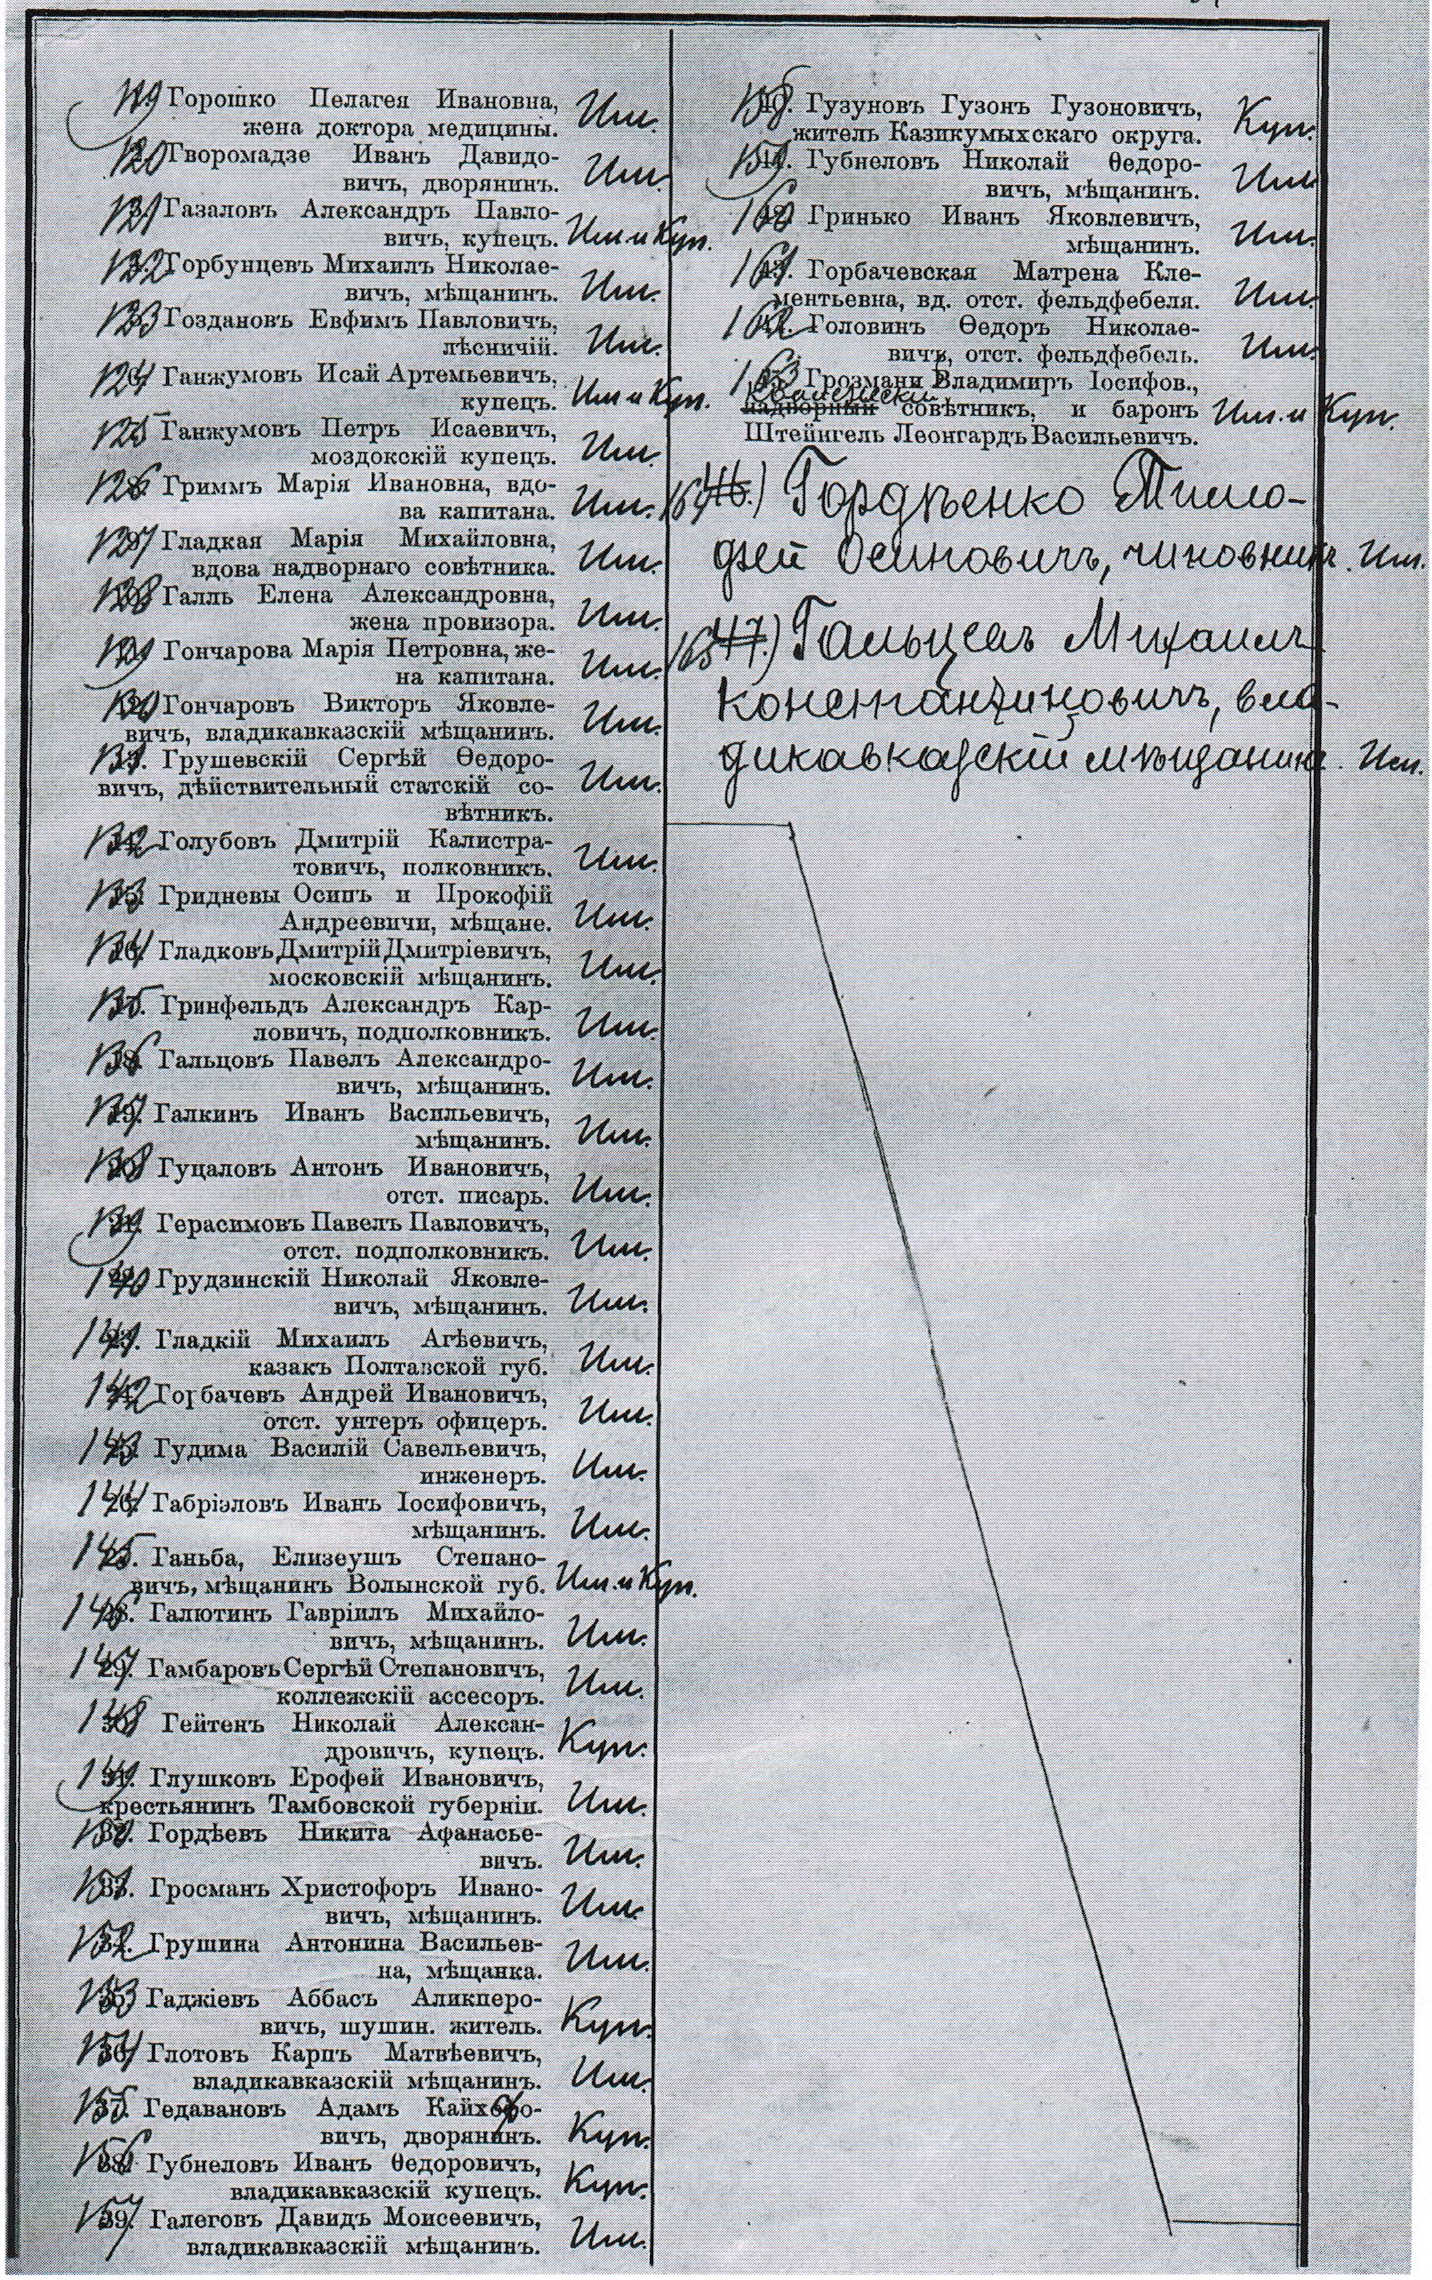 119 Горошко Пелагея Ивановна,
жена доктора медицины. Им.
120 Гворомадзе Иванъ Давидо-
вичъ, дворянинъ. Им.
121 Газаловъ Александръ Павло-
вичъ, купецъ. Им. и Куп.
122 Горбунцевъ Михаилъ Николае-
вичъ, мѣщанинъ. Им.
123 Гоздановъ Евфимъ Павловичъ,
лѣсничій. Им.
124 Ганжумовъ Исай Артемьевичъ,
купецъ. Им и Куп.
125 Ганжумовъ Петръ Исаевичъ,
моздокскій купецъ. Им.
126 Гриммъ Марія Ивановна, вдо-
ва капитана. Им.
127 Гладкая Марія Михайловна,
вдова надворнаго совѣтника. Им.
128 Галль Елена Александровна,
жена провизора. Им.
129 Гончарова Марія Петровна, же-
на капитана. Им.
130 Гончаровъ Викторъ Яковле-
вичъ, владикавказскій мѣщанинъ. Им.
131 Грушевскій Сергѣй Ѳедоро-
вичъ, дѣйствительный статскій со-
вѣтникъ. Им.
132 Голубовъ Дмитрій Калистра-
товичъ, полковникъ. Им.
133 Гридневы Осипъ и Прокофій
Андреевичи, мѣщане. Им.
134 Гладковъ Дмитрій Дмитріевичъ,
московскій мѣщанинъ. Им.
135 Гринфельдъ Александръ Кар-
ловичъ, подполковникъ. Им.
136 Гальцовъ Павелъ Александро-
вичъ, мѣщанинъ. Им.
137 Галкинъ Иванъ Васильевичъ,
мѣщанинъ. Им.
138 Гуцаловъ Антонъ Ивановичъ,
отст. писарь. Им.
139 Герасимовъ Павелъ Павловичъ,
отст. подполковникъ. Им.
140 Грудзинскій Николай Яковле-
вичъ, мѣщанинъ. Им.
141 Гладкій Михаилъ Агѣевичъ,
казакъ Полтавской губ. Им.
142 Горбачевъ Андрей Ивановичъ,
отст. унтеръ офицеръ. Им.
143 Гудима Василій Савельевичъ,
инженеръ. Им.
144 Габріэловъ Иванъ Іосифовичъ,
мѣщанинъ. Им.
145 Ганьба, Елизеушъ Степано-
вичъ, мѣщанинъ Волынской губ. Им. и Куп.
146 Галютинъ Гавріилъ Михайло-
вичъ, мѣщанинъ. Им.
147 29. Гамбаровъ Сергѣй Степановичъ,
коллежскій ассесоръ. Им.
148 30. Гейтенъ Николай Алексан-
дровичъ, купецъ. Куп.
149 31. Глушковъ Ерофей Ивановичъ,
крестьянинъ Тамбовской губерніи. Им.
150 32. Гордѣевъ Никита Афанасье-
вичъ. Им.
151 33. Гросманъ Христофоръ Ивано-
вичъ, мѣщанинъ. Им.
152 34. Грушина Антонина Васильев-
на, мѣщанка. Им.
153 35. Гаджіевъ Аббасъ Аликперо-
вичъ, шушин. житель. Куп.
154 36. Глотовъ Карпъ Матвѣевичъ,
владикавказскій мѣщанинъ. Им.
155 37. Гедавановъ Адамъ Кайхоро-
вичъ, дворянинъ. Куп.
156 38. Губнеловъ Иванъ Ѳедоровичъ,
владикавказскій купецъ. Куп.
157 39. Галеговъ Давидъ Моисеевичъ,
владикавказскій мѣщанинъ. Им.
158 40. Гузуновъ Гузонъ Гузоновичъ,
житель Казикумыхскаго округа. Куп.
159 41. Губнеловъ Николай Ѳедоро-
вичъ, мѣщанинъ. Им.
160 42. Гринько Иванъ Яковлевичъ,
мѣщанинъ. Им.
161 43. Горбачевская Матрена Кле-
ментьевна, вд. отст. фельдфебеля. Им.
162 44. Головинъ Ѳедоръ Николае-
вичъ, отст. фельдфебель. Им.
163 45. Грозмани Владимиръ Іосифов.,
Коллежскій
надворный совѣтникъ, и баронъ Им. и Куп.
Штейнгель Леонгардъ Васильевичъ.
164 46.) Гордѣенко Тимо-
фей Осиповичъ, чиновникъ. Им.
165 47.) Гальцевъ Михаилъ
Константиновичъ, вла-
дикавказскій мѣщанинъ. Им.